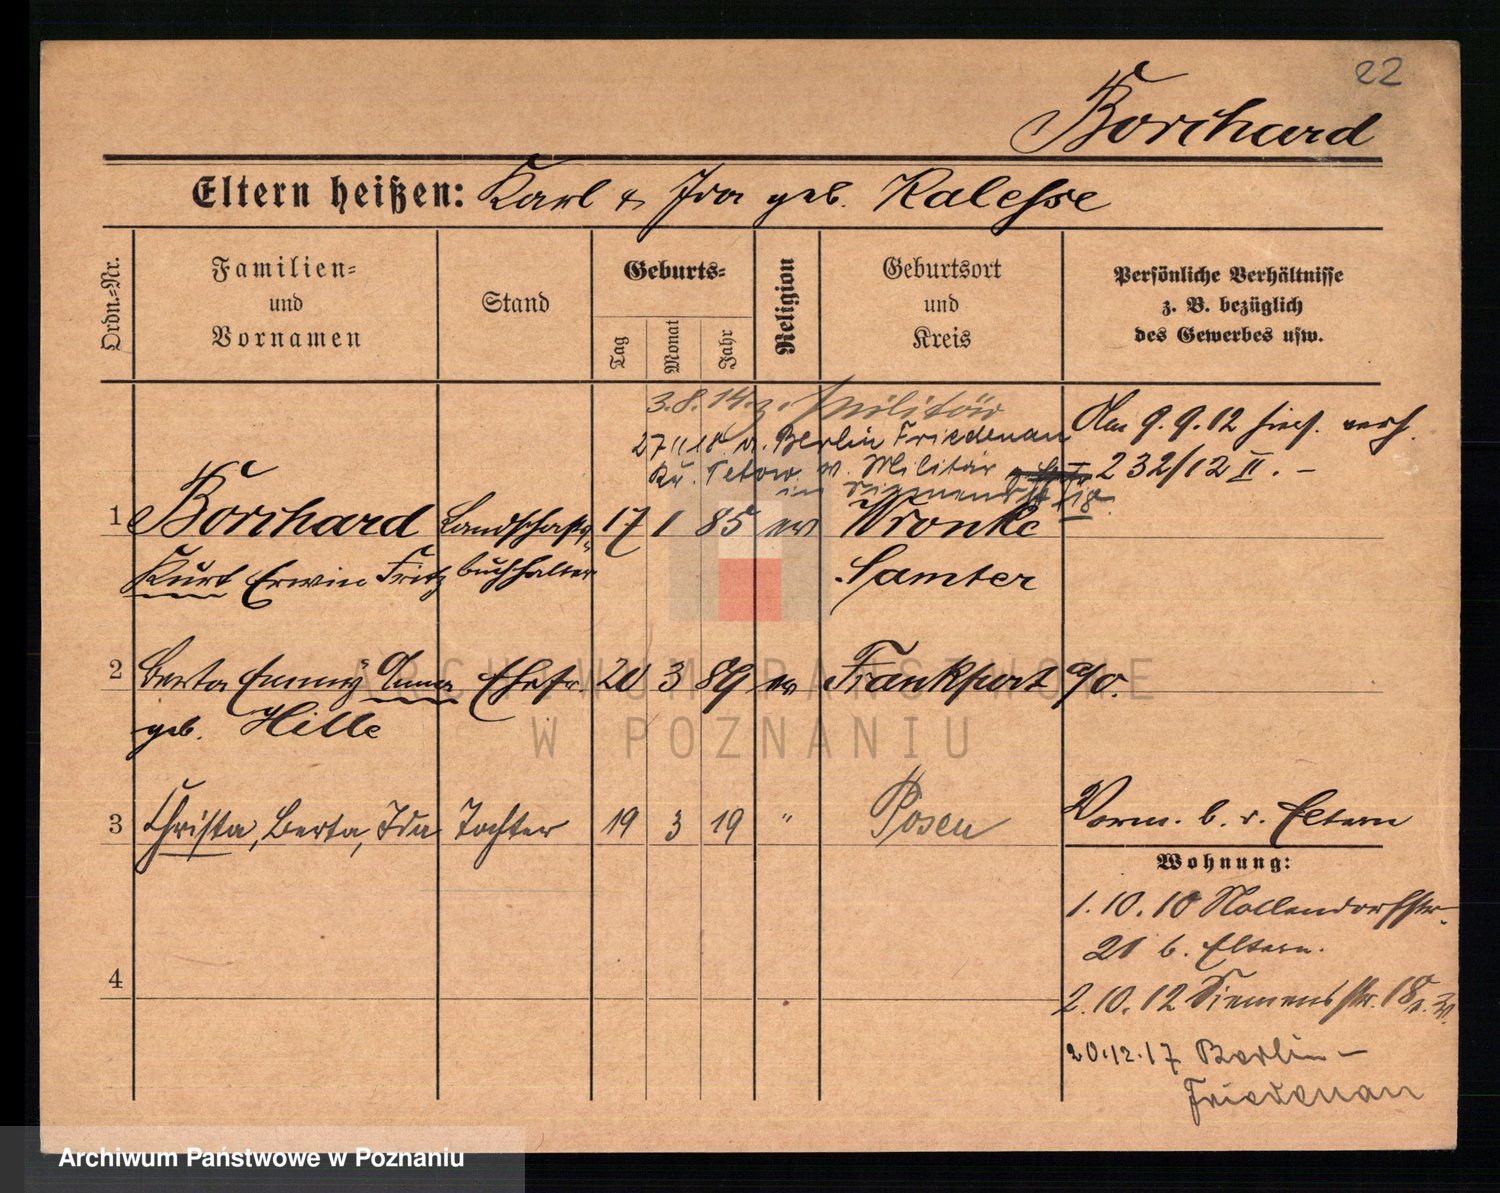 22
Borchard
Eltern heißen: Karl & Ida geb. Kalesse
Ordn.-Nr.
Familien-
und
Vornamen
Stand
Geburts-
Tag
Monat
Jahr
Religion
Geburtsort
und
Kreis
Persönliche Verhältnisse
z. B. bezüglich
des Gewerbes usw.
3.8.14 z. Militär
27.11.18 v. Berlin Friedenau
v. Militär
Am 9.9.12 hies. verh.
232/12 II. –
1
Borchard
Landschafts-
17 1 85 ev
Wronke
Kurt Erwin Fritz
buchhalter
Samter
2
Berta Emmy Anna
Ehefr.
20 3 89 ev
Frankfurt a/O.
geb. Hille
3
Christa, Berta, Ida
Tochter
19 3 19 "
Posen
Vorm. b. d. Eltern
Wohnung:
1.10.10 Nollendorfstr.
20 b. Eltern.
4
2.10.12 Siemensstr. 18
20.12.17 Berlin –
Friedenau
ARCHIWUM PAŃSTWOWE
W POZNANIU
Archiwum Państwowe w Poznaniu